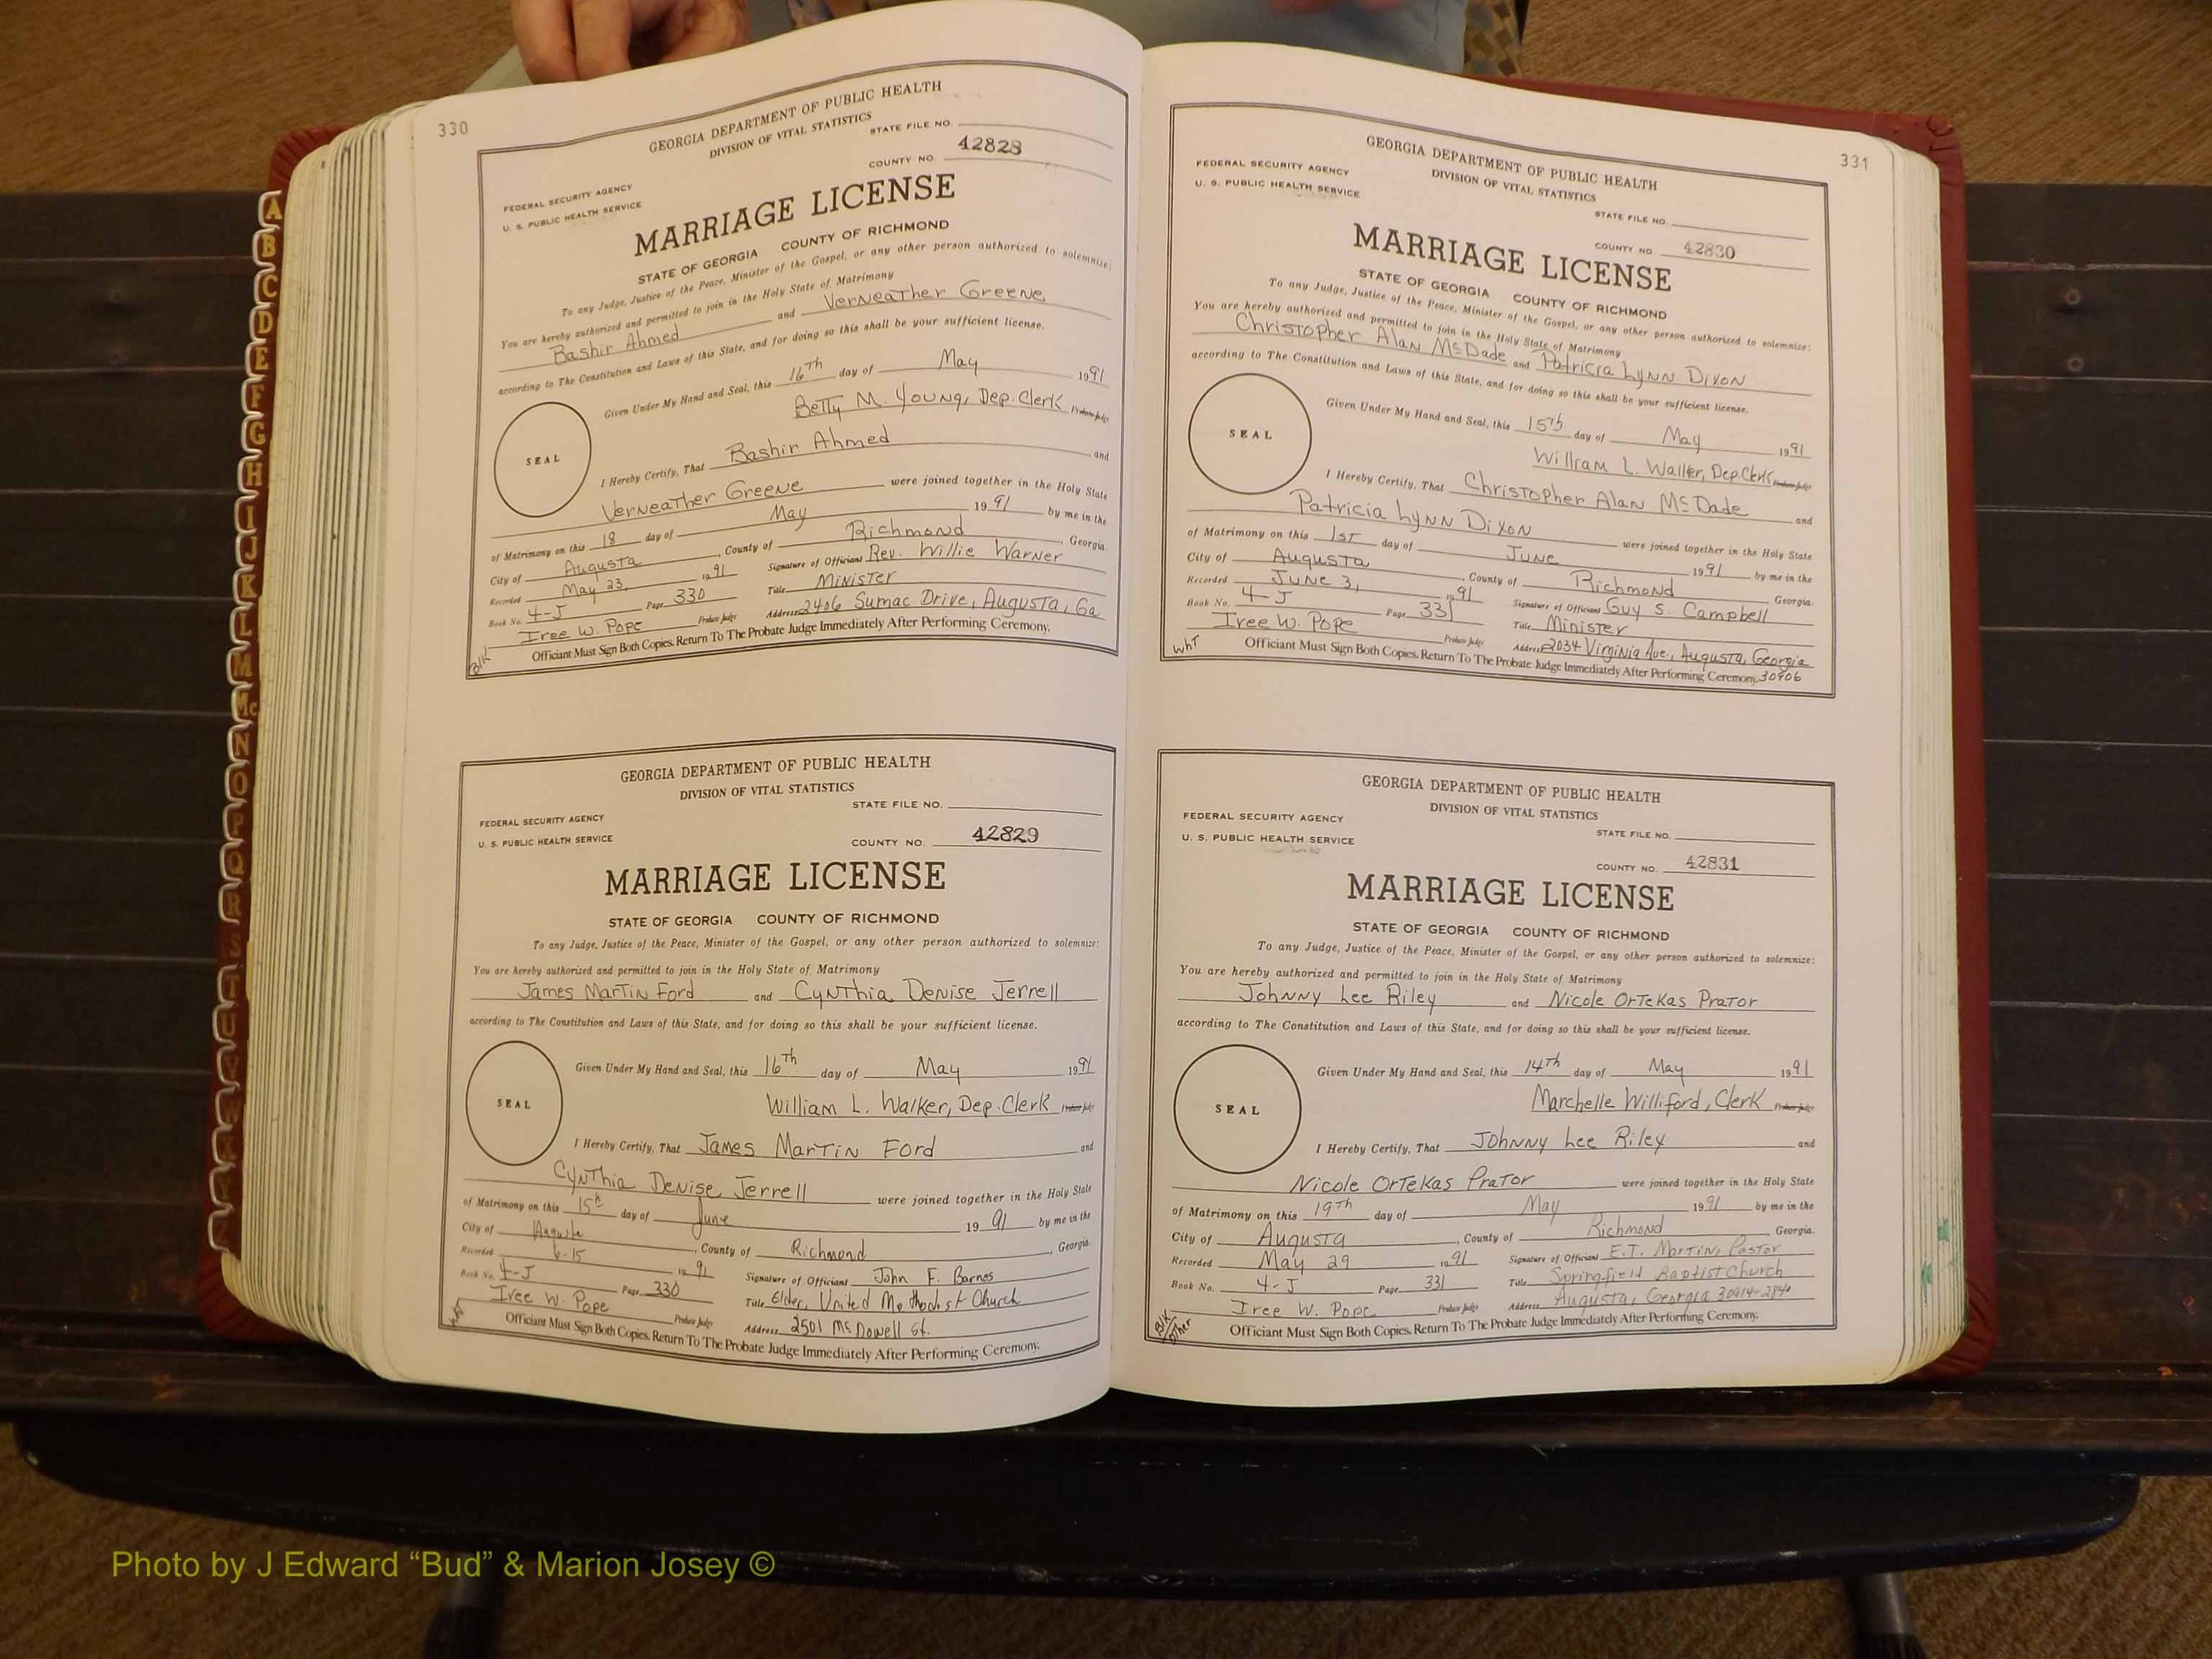 330
GEORGIA DEPARTMENT OF PUBLIC HEALTH
DIVISION OF VITAL STATISTICS
STATE FILE NO.
COUNTY NO. 42828
FEDERAL SECURITY AGENCY
U. S. PUBLIC HEALTH SERVICE
MARRIAGE LICENSE
STATE OF GEORGIA COUNTY OF RICHMOND
To any Judge, Justice of the Peace, Minister of the Gospel, or any other person authorized to solemnize:
You are hereby authorized and permitted to join in the Holy State of Matrimony
Bashir Ahmed and Verneather Greene
according to The Constitution and Laws of this State, and for doing so this shall be your sufficient license.
Given Under My Hand and Seal, this 16th day of May 1991
Betty M. Young, Dep. Clerk Probate Judge
SEAL
I Hereby Certify, That Bashir Ahmed and
Verneather Greene were joined together in the Holy State
of Matrimony on this 18 day of May 1991 by me in the
City of Augusta, County of Richmond, Georgia.
Recorded May 23, 1991 Signature of Officiant Rev. Willie Warner
Book No. 4-J Page 330 Title Minister
Iree W. Pope Probate Judge Address 2406 Sumac Drive, Augusta, Ga
Officiant Must Sign Both Copies. Return To The Probate Judge Immediately After Performing Ceremony.
Blk
GEORGIA DEPARTMENT OF PUBLIC HEALTH
DIVISION OF VITAL STATISTICS
STATE FILE NO.
FEDERAL SECURITY AGENCY
U. S. PUBLIC HEALTH SERVICE
COUNTY NO. 42829
MARRIAGE LICENSE
STATE OF GEORGIA COUNTY OF RICHMOND
To any Judge, Justice of the Peace, Minister of the Gospel, or any other person authorized to solemnize:
You are hereby authorized and permitted to join in the Holy State of Matrimony
James Martin Ford and Cynthia Denise Jerrell
according to The Constitution and Laws of this State, and for doing so this shall be your sufficient license.
Given Under My Hand and Seal, this 16th day of May 1991
William L. Walker, Dep. Clerk Probate Judge
SEAL
I Hereby Certify, That James Martin Ford and
Cynthia Denise Jerrell were joined together in the Holy State
of Matrimony on this 15th day of June 1991 by me in the
City of Augusta, County of Richmond, Georgia.
Recorded 6-15 1991 Signature of Officiant John F. Barnes
Book No. 4-J Page 330 Title Elder, United Methodist Church
Iree W. Pope Probate Judge Address 2501 McDowell St.
Officiant Must Sign Both Copies. Return To The Probate Judge Immediately After Performing Ceremony.
331
GEORGIA DEPARTMENT OF PUBLIC HEALTH
DIVISION OF VITAL STATISTICS
FEDERAL SECURITY AGENCY
U. S. PUBLIC HEALTH SERVICE
STATE FILE NO.
COUNTY NO. 42830
MARRIAGE LICENSE
STATE OF GEORGIA COUNTY OF RICHMOND
To any Judge, Justice of the Peace, Minister of the Gospel, or any other person authorized to solemnize:
You are hereby authorized and permitted to join in the Holy State of Matrimony
Christopher Alan McDade and Patricia Lynn Dixon
according to The Constitution and Laws of this State, and for doing so this shall be your sufficient license.
Given Under My Hand and Seal, this 15th day of May 1991
William L. Walker, Dep. Clerk Probate Judge
SEAL
I Hereby Certify, That Christopher Alan McDade and
Patricia Lynn Dixon were joined together in the Holy State
of Matrimony on this 1st day of June 1991 by me in the
City of Augusta, County of Richmond Georgia.
Recorded June 3, 1991 Signature of Officiant Guy S. Campbell
Book No. 4-J Page 331 Title Minister
Iree W. Pope Probate Judge Address 2034 Virginia Ave., Augusta, Georgia
Wht Officiant Must Sign Both Copies. Return To The Probate Judge Immediately After Performing Ceremony. 30906
GEORGIA DEPARTMENT OF PUBLIC HEALTH
DIVISION OF VITAL STATISTICS
FEDERAL SECURITY AGENCY
U. S. PUBLIC HEALTH SERVICE
STATE FILE NO.
COUNTY NO. 42831
MARRIAGE LICENSE
STATE OF GEORGIA COUNTY OF RICHMOND
To any Judge, Justice of the Peace, Minister of the Gospel, or any other person authorized to solemnize:
You are hereby authorized and permitted to join in the Holy State of Matrimony
Johnny Lee Riley and Nicole Ortekas Prator
according to The Constitution and Laws of this State, and for doing so this shall be your sufficient license.
Given Under My Hand and Seal, this 14th day of May 1991
Marchelle Williford, Clerk Probate Judge
SEAL
I Hereby Certify, That Johnny Lee Riley and
Nicole Ortekas Prator were joined together in the Holy State
of Matrimony on this 19th day of May 1991 by me in the
City of Augusta, County of Richmond Georgia.
Recorded May 29 1991 Signature of Officiant E.T. Martin, Pastor
Book No. 4-J Page 331 Title Springfield Baptist Church
Iree W. Pope Probate Judge Address Augusta, Georgia
Blk/other Officiant Must Sign Both Copies. Return To The Probate Judge Immediately After Performing Ceremony.
A
B
C
D
E
F
G
H
I
J
K
L
M
Mc
N
O
P
Q
R
S
T
U
V
W
Photo by J Edward “Bud” & Marion Josey ©